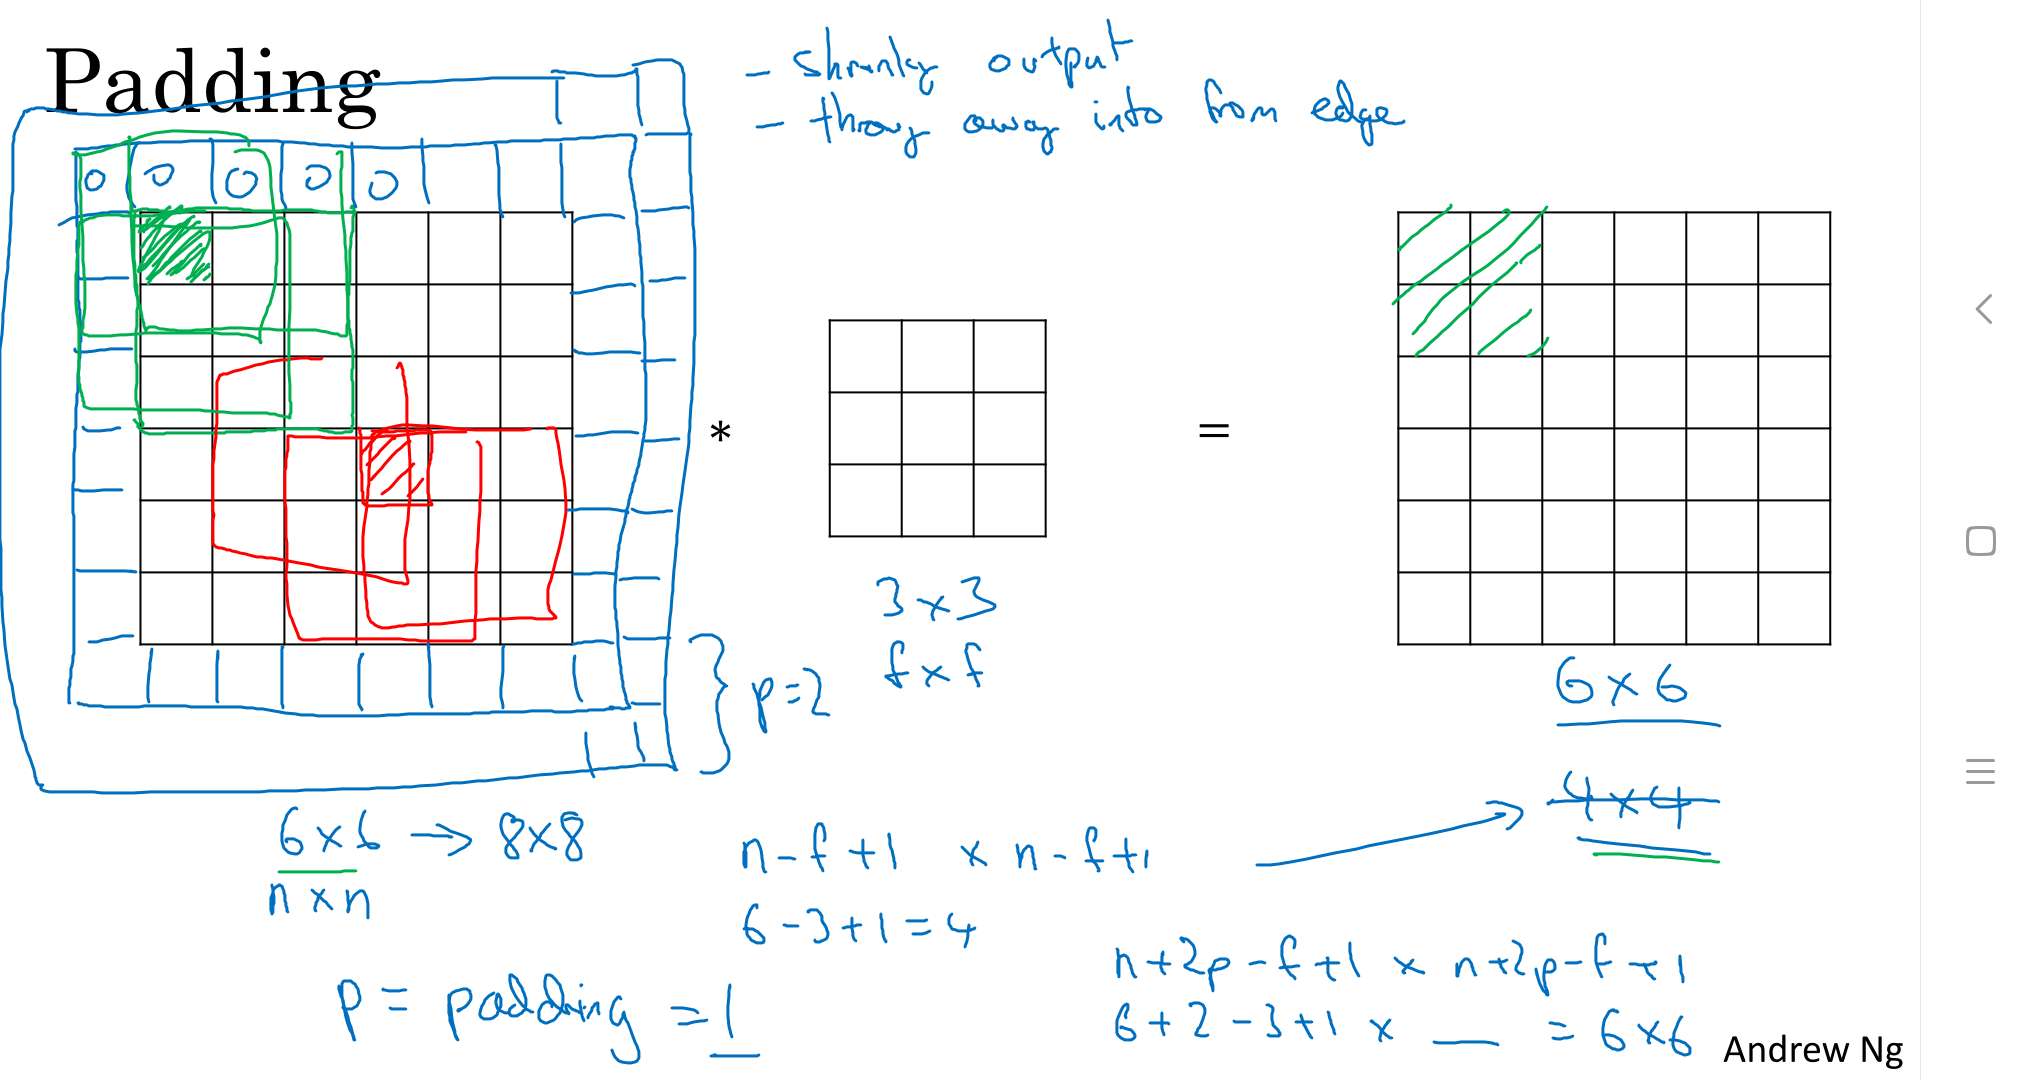 Padding
- shrinky output
- throw away info from edge
0 0 0 0 0
*
=
3 x 3
f x f
p=2
6 x 6
4 x 4
6 x 6 → 8 x 8
n x n
n - f + 1 x n - f + 1
6 - 3 + 1 = 4
p = padding = 1
n + 2p - f + 1 x n + 2p - f + 1
6 + 2 - 3 + 1 x __ = 6 x 6
Andrew Ng